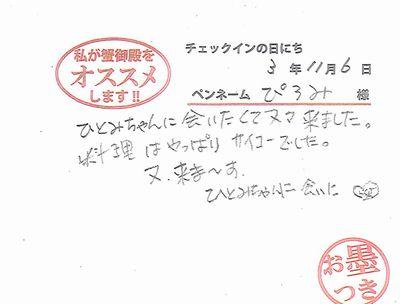 私が蟹御殿を
オススメ
します!!
チェックインの日にち
3 年 11 月 6 日
ペンネーム ぴろみ 様
ひとみちゃんに会いたくて又々来ました。
料理はやっぱりサイコーでした。
又、来ま〜す。
ひとみちゃんに会いに
お墨
つき